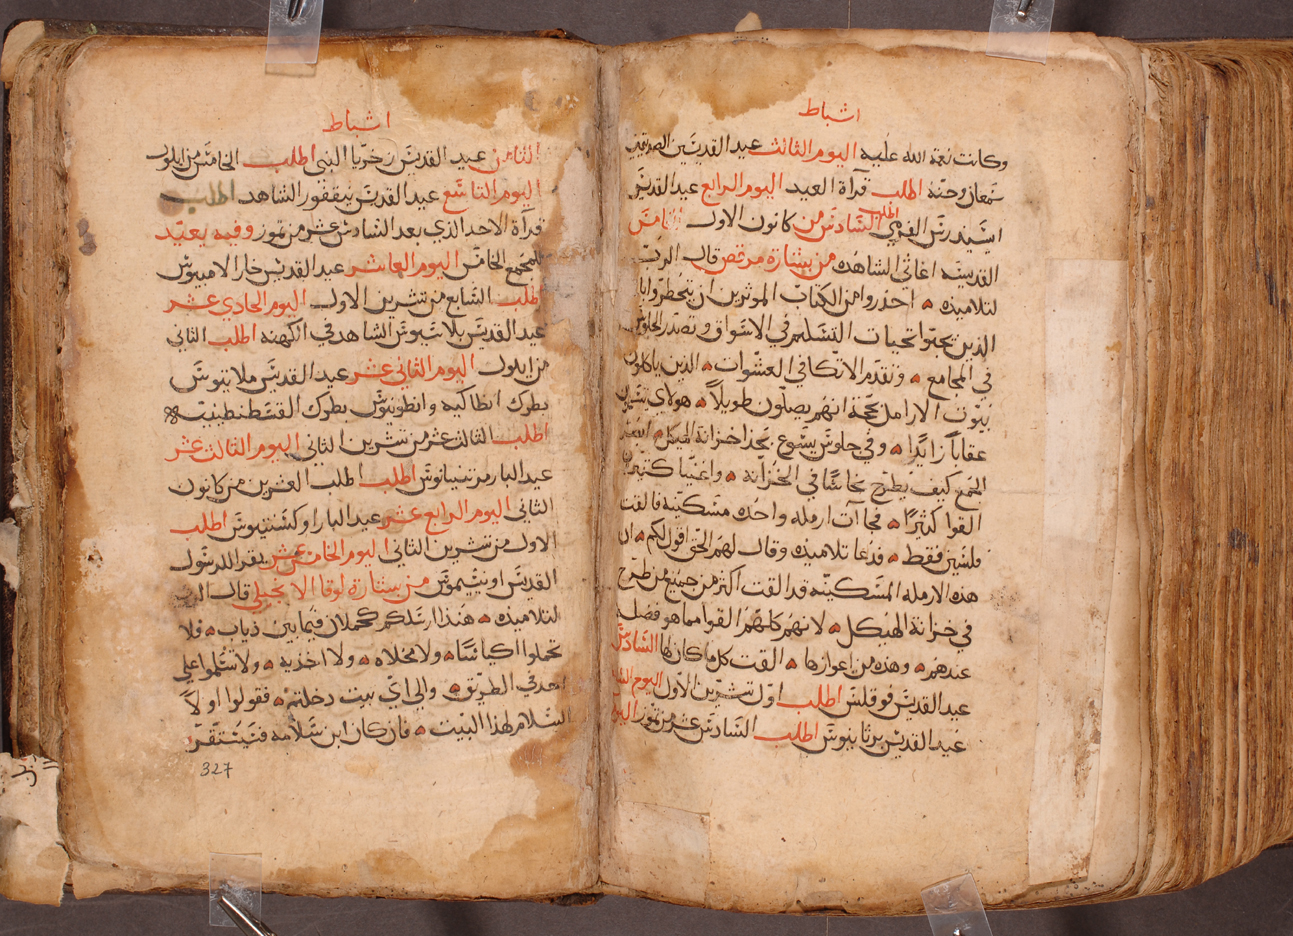 اشباط
وكانت نعمة الله عليه اليوم الثالث عيد القديسين الصديقين
سمعان وحنه اطلب قرآة العيد اليوم الرابع عيد القديس
السادس من كانون الاول الخامس اطلب
القديسه اغاثي الشاهده من بشارة مرقص قال الرب
لتلاميذه احذروا من الكتاب الموثرين ان يتخطروا بالا
الذين يحبوا تحيات التسليم في الاسواق وتصدر الجلوس
في المجامع وتقدم الاتكا في العشوات الذين ياكلون
بيوت الارامل بحجة انهم يصلون طويلاً هولاي
عقاباً زايداً وفي جلوس يسوع بحذا خزانة الهيكل
الجمع كيف يطرح نحاسًا في الخزانه واغنيا كثيرين
القوا كثيرًا فجاآت ارمله واحده مسكينه فالقت
فلسين فقط فدعا تلاميذه وقال لهم الحق اقول لكم ان
هذه الارمله المسكينه قد القت اكثر من جميع من طرح
في خزانة الهيكل لانهم كلهم القوا مما هو فضل
عندهم وهذه من اعوازها القت كل ما كان لها السادس
عيد القديس فوقلس اطلب اول تشرين الاول اليوم
عيد القديس برثانيوس اطلب السادس عشر من تموز اليوم
اشباط
الثامن عيد القديس زخريا النبي اطلب الخامس من ايلول
اليوم التاسع عيد القديس نيقفور الشاهد اطلب
قرآة الاحد الذي بعد السادس عشر من تموز وفيه يعيد
للمجمع الخامس اليوم العاشر عيد القديس خارالامبيوس
اطلب السابع من تشرين الاول اليوم الحادي عشر
عيد القديس بلاسيوس الشاهد في الكهنه اطلب الثاني
من ايلول اليوم الثاني عشر عيد القديس ملاتيوس
بطرك انطاكيه وانطونيوس بطرك القسطنطينيه
اطلب الثالث عشر من تشرين الثاني اليوم الثالث عشر
عيد البار مرتنيانوس اطلب اطلب العشرين من كانون
الثاني اليوم الرابع عشر عيد البار اوكسنتيوس اطلب
الاول من تشرين الثاني اليوم الخامس عشر يقرا للرسول
القديس اونيسيموس من بشارة لوقا الانجيلي قال الرب
لتلاميذه هنذا ارسلكم كحملان فيما بين ذياب فلا
تحملوا اكياسًا ولا مخلاه ولا احذيه ولا تسلموا على
احد في الطريق والى اي بيت دخلتم فقولوا اولاً
السلام لهذا البيت فان كان ابن سلامه فسيستقر
327